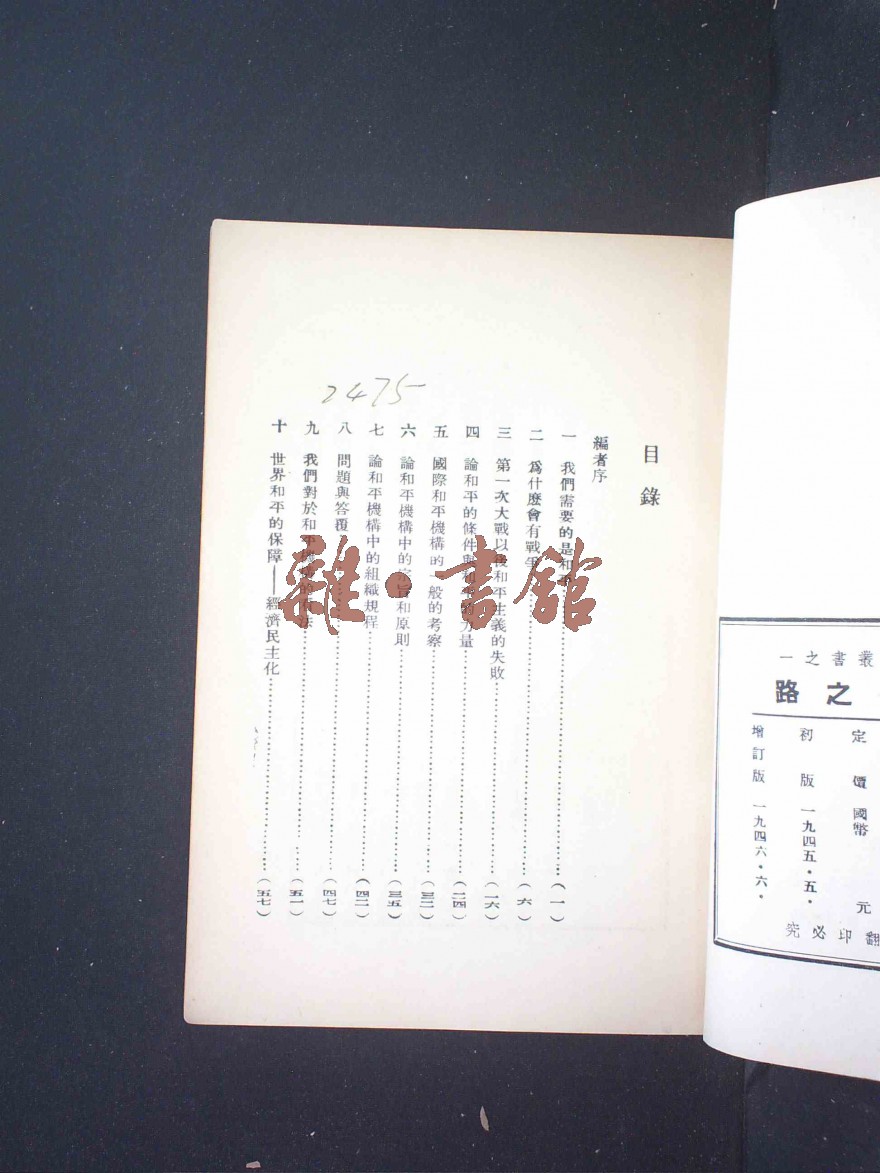 叢書之一
之路
定價國幣 元
初版 一九四五·五·
增訂版 一九四六·六·
翻印必究
目錄
編者序
一 我們需要的是和平……(一)
二 爲什麼會有戰爭……(六)
三 第一次大戰以後和平主義的失敗……(一六)
四 論和平的條件與和平的力量……(二四)
五 國際和平機構的一般的考察……(三二)
六 論和平機構中的宗旨和原則……(三五)
七 論和平機構中的組織規程……(四二)
八 問題與答覆……(四七)
九 我們對於和平機構的看法……(五一)
十 世界和平的保障——經濟民主化……(五七)
2475
雜·書館